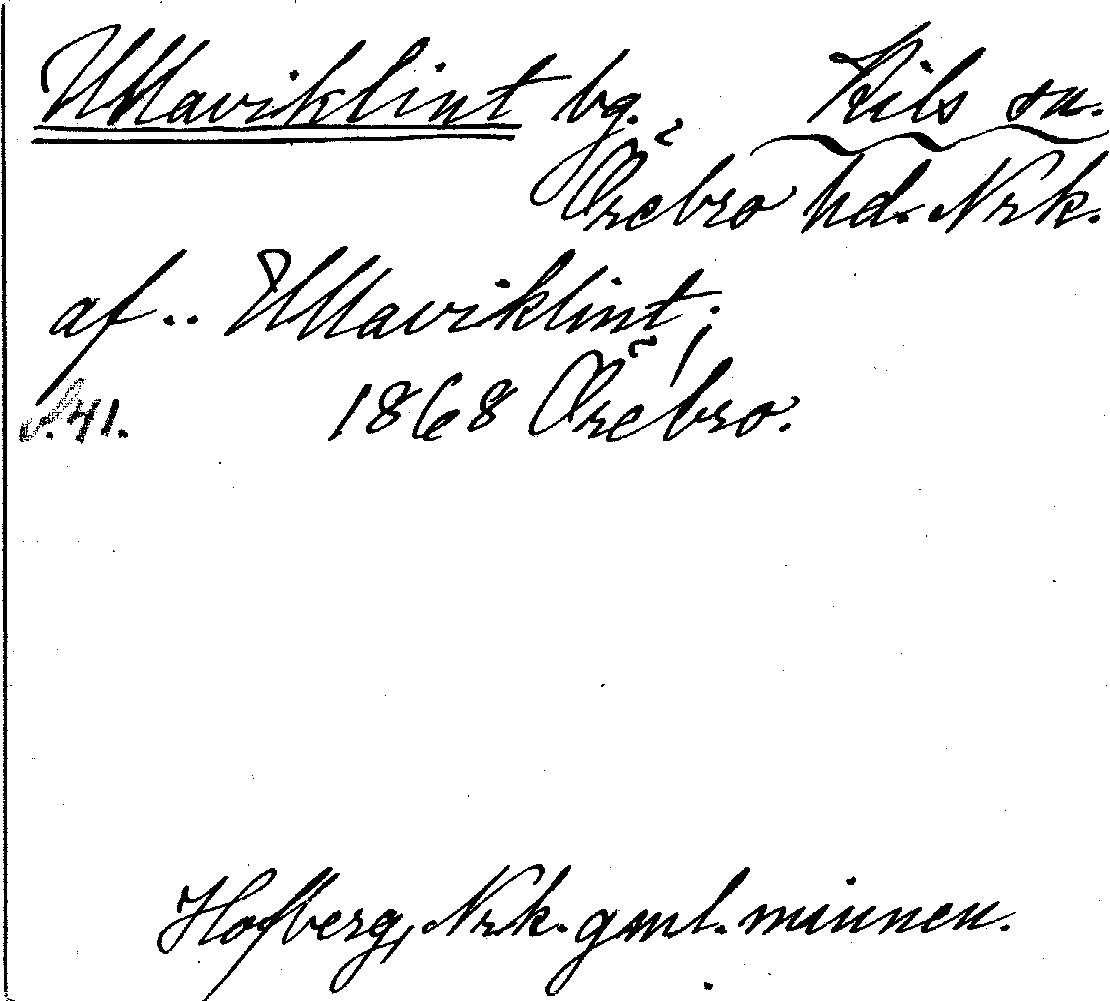 Ullaviklint bg. Kils sn.
Örebro hd. Nrk.
af .. Ullaviklint;
s. 41. 1868 Örebro.
Hofberg, Nrk. gml. minnen.